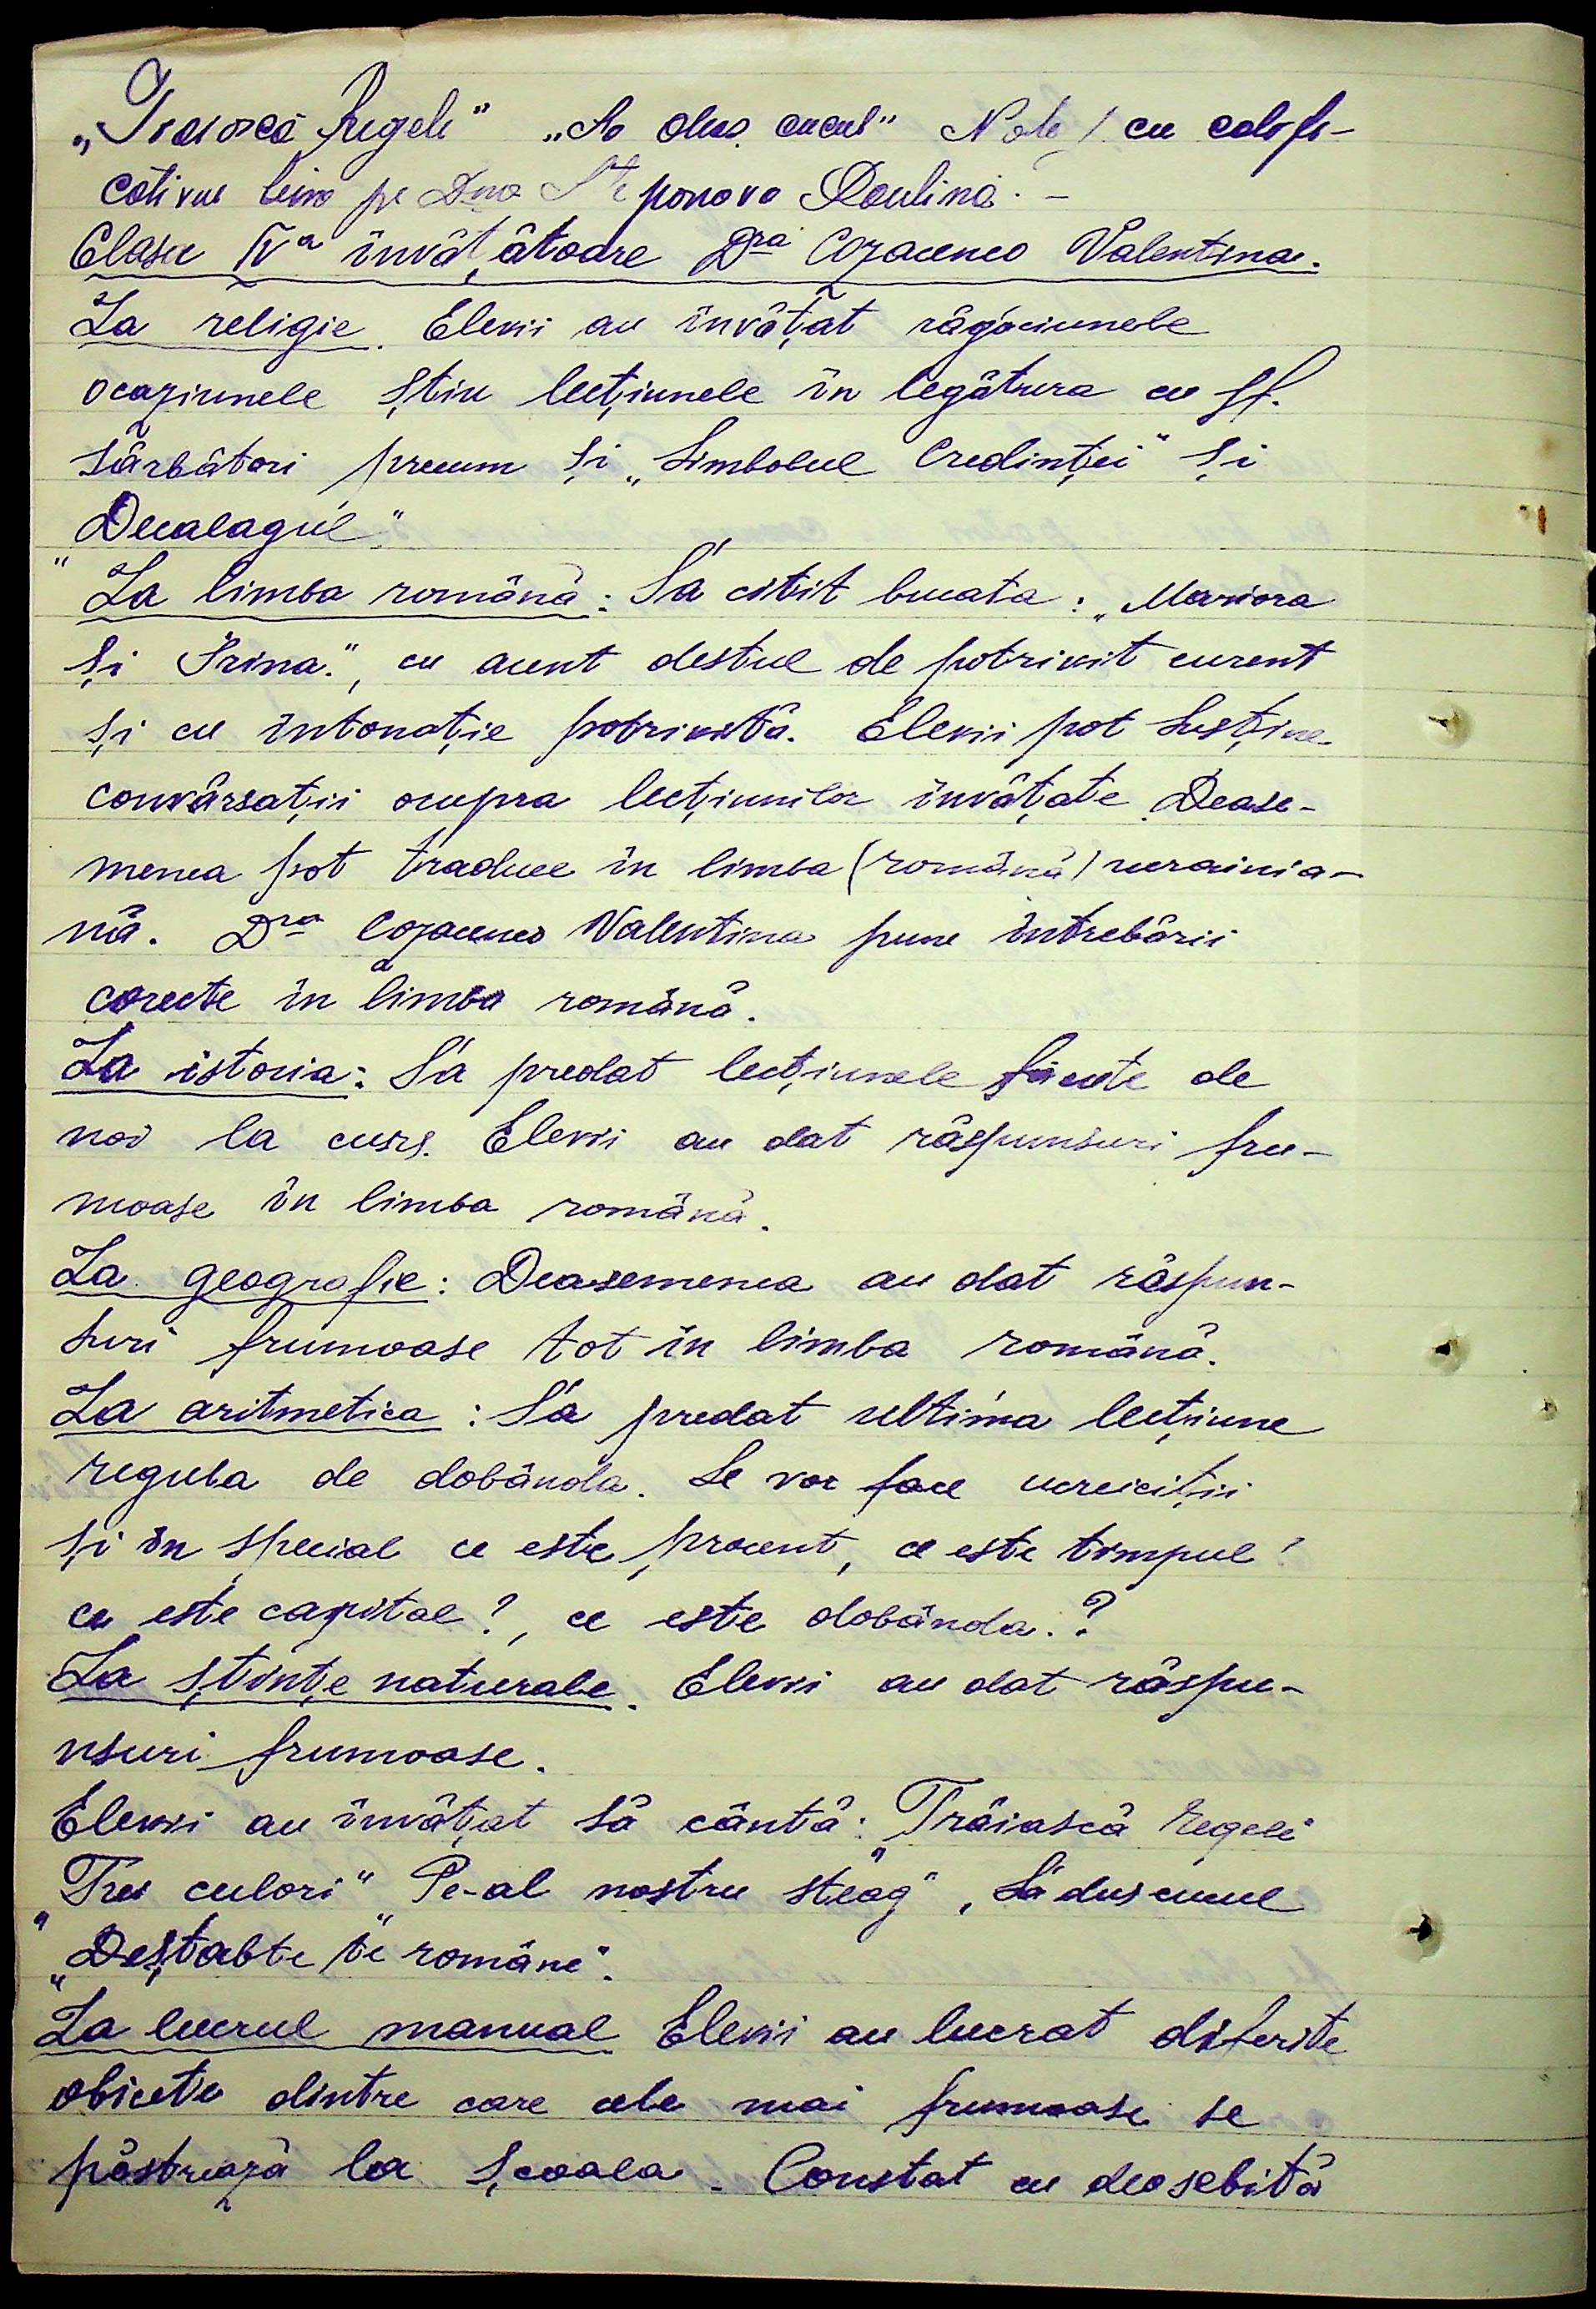 „Traiască Regele" „S'a dus cucul" Note/. cu califi-
cativul bine pe Dna Steponova Paulina. –
Clasa IVa învățătoare Dra Cozacenco Valentina.
La religie. Elevii au învățat răgăciunele
ocaziunele știu lecțiunele în legătura cu Sf.
sărbători precum și „Simbolul Credinței" și
„Decalagul".
La limba română: S'a citit bucata: „Mariora
și Irina.", cu acent destul de potrivit curent
și cu intonație potrivită. Elevii pot susține
convărsații asupra lecțiunilor învățate. Dease-
menea pot traduce în limba (română) ucrainia-
nă. Dra Cozacenco Valentina pune întrebării
corecte în limba română.
La istoria: S'a predat lecțiunele făcute de
noi la curs. Elevii au dat răspunsuri fru-
moase în limba română.
La geografie: Deasemenea au dat răspun-
suri frumoase tot în limba română.
La aritmetica: S'a predat ultima lecțiune
regula de dobânda. Se vor face exreciții
și în special ce este procent, ce este timpul?
ce este capital?, ce este dobânda.?
La ștințe naturale. Elevii au dat răspu-
nsuri frumoase.
Elevii au învățat să cântă: „Trăiască Regele
„Trei culori" „Pe-al nostru steag", S'a dus cucul
„Deștabte te române".
La lucrul manual Elevii au lucrat diferite
obiecte dintre care cele mai frumoase se
păstrează la școala. Constat cu deosebită